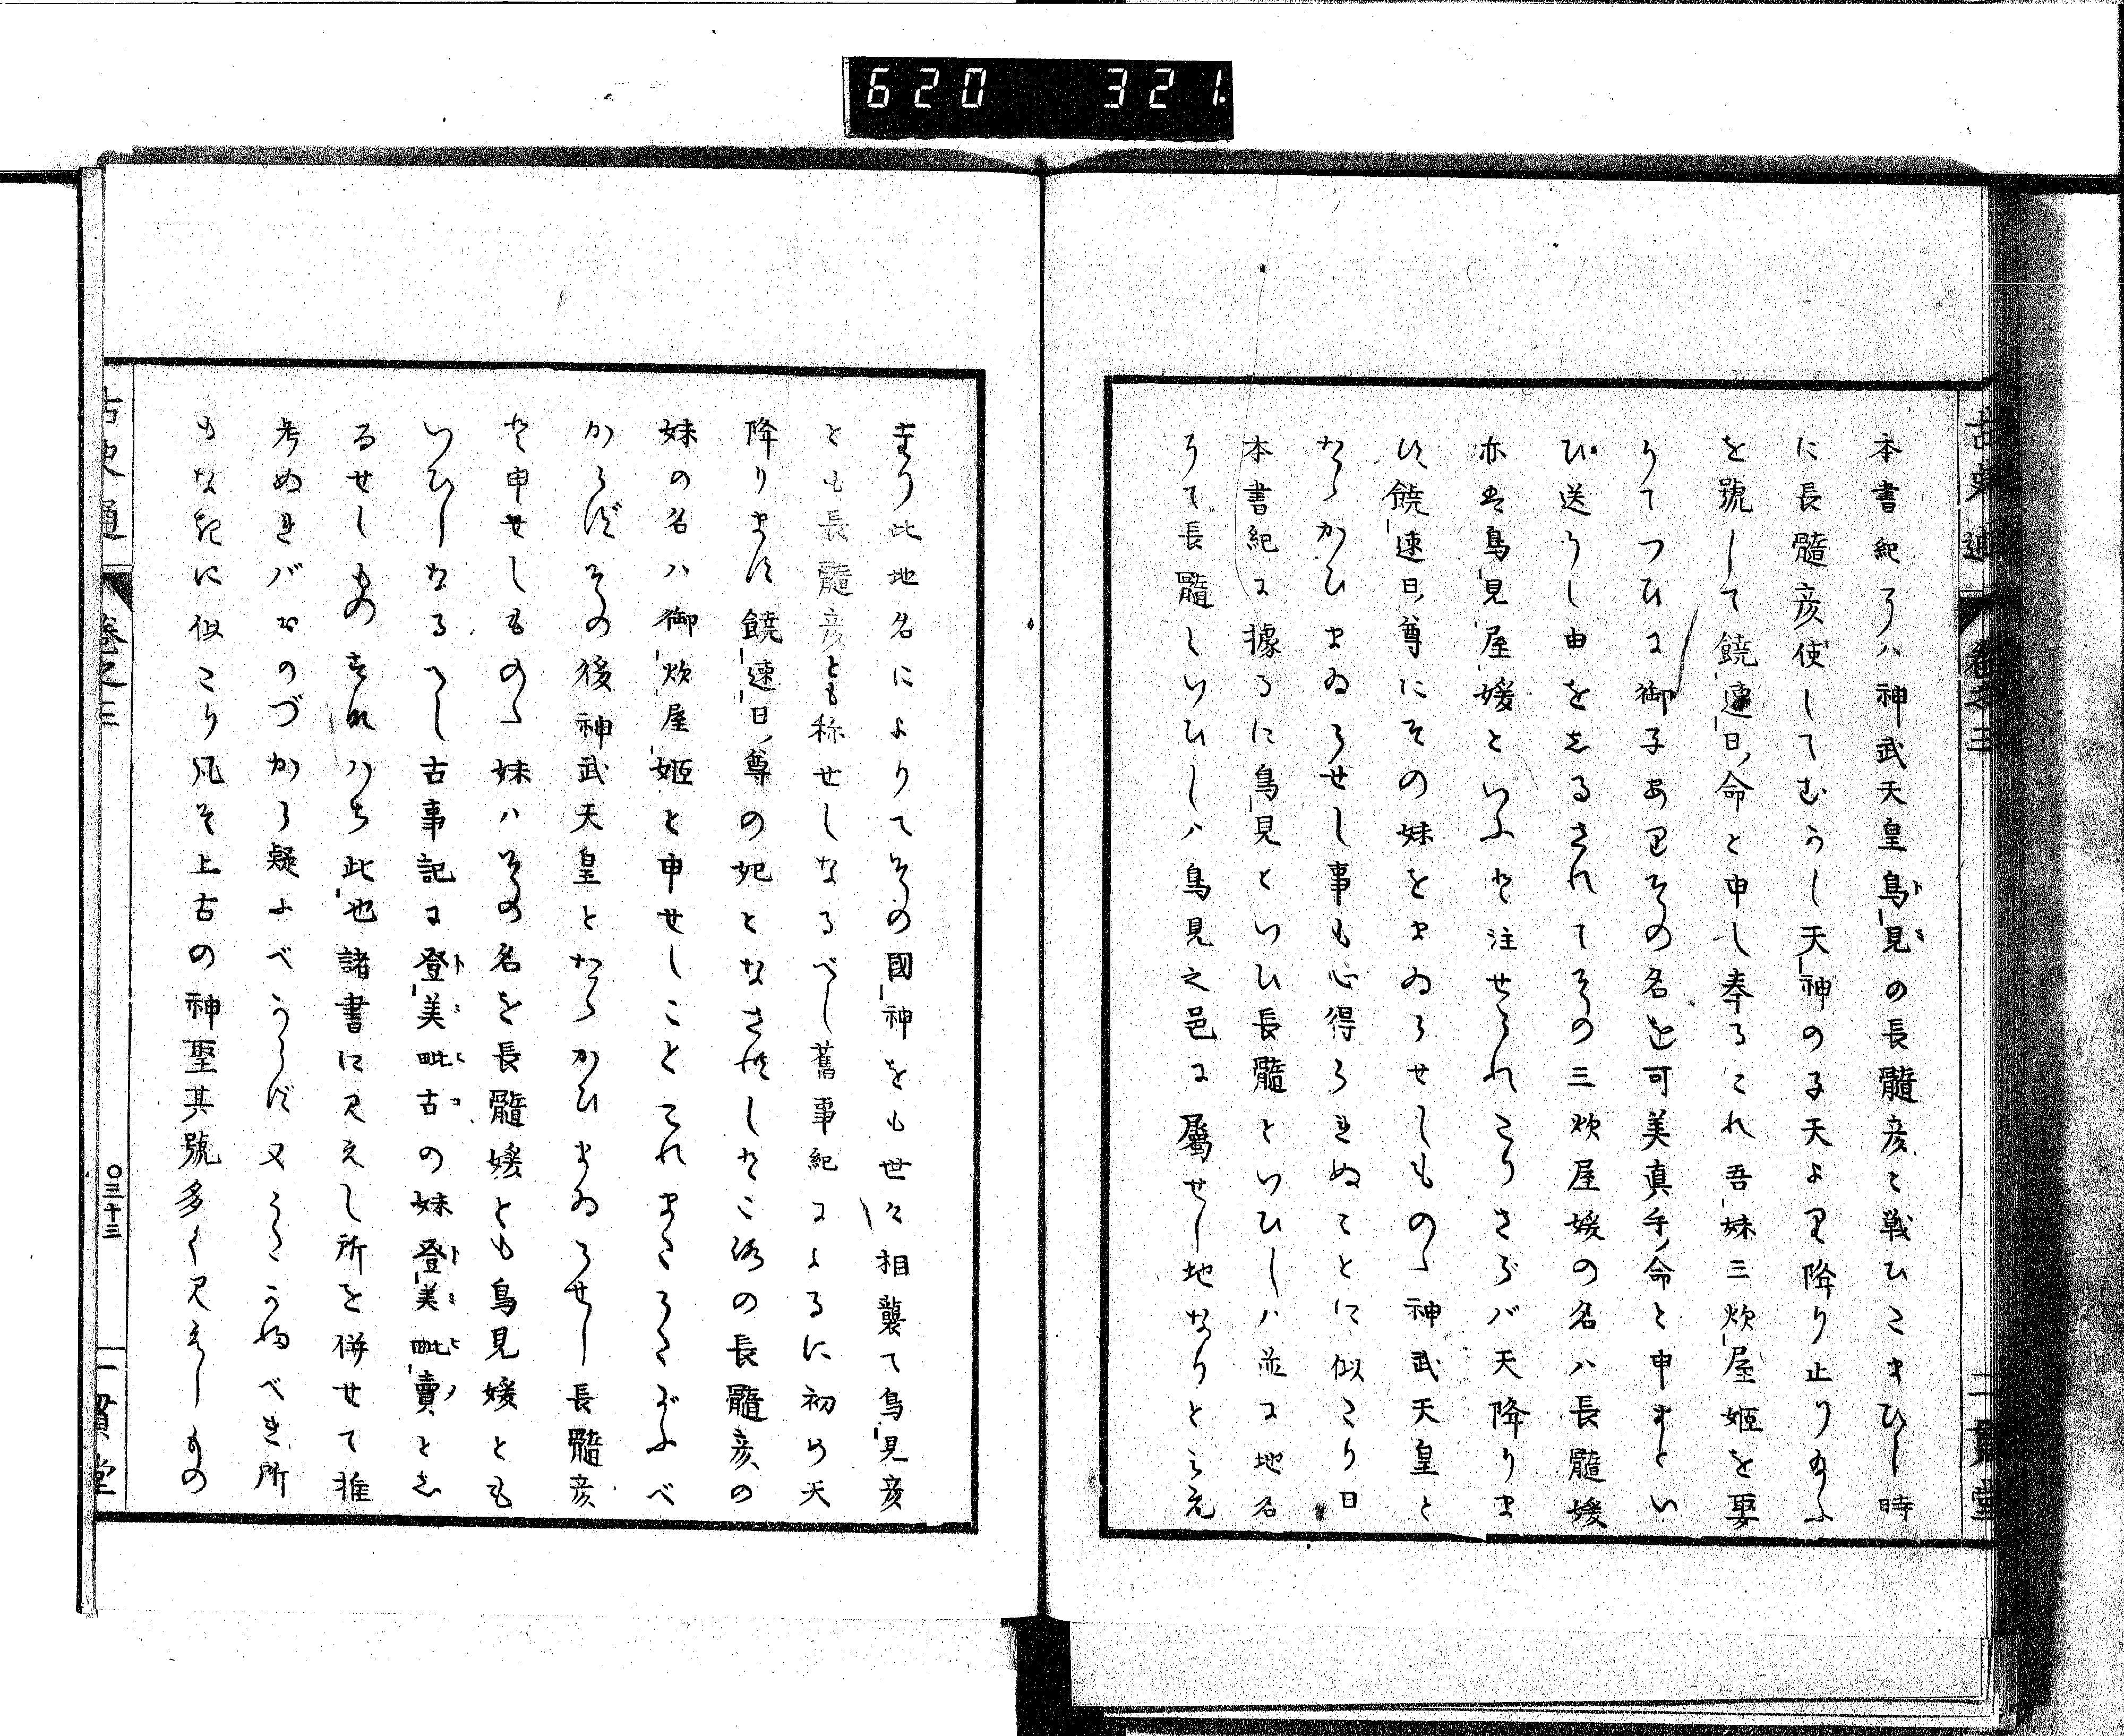 620 321.
古史通 卷之三
本書紀にハ神武天皇鳥見の長髓彦と戦ひたまひし時
に長髓彦使してむかし天神の子天より降り止り給ふ
を號して饒速日ノ命と申し奉るこれ吾妹三炊屋姫を娶
りてつひに御子ありその名を可美真手ノ命と申すとい
ひ送りし由をしるされてその三炊屋媛の名ハ長髓媛
亦は鳥見屋媛といふと注せられたりさらバ天降りま
す饒速日ノ尊にその妹をまゐらせしものゝ神武天皇と
たゝかひまゐらせし事も心得られぬことに似たり日
本書紀に據るに鳥見といひ長髓といひしハ並に地名
にて長髓といひしハ鳥見之邑に屬せし地なりとみえ
一貫堂
まり此地名によりてその國神をも世々相襲て鳥見彦
とも長髓彦とも称せしなるべし舊事紀によるに初め天
降ります饒速日ノ尊の妃となされしところの長髓彦の
妹の名ハ御炊屋姫と申せしことこれまたうたがふべ
からずその後神武天皇とたゝかひまゐらせし長髓彦
と申せしものゝ妹ハその名を長髓媛とも鳥見媛とも
いひしなるべし古事記に登美毗古の妹登美毗賣としる
るせしものすなハち此也諸書に見えし所を併せて推
考ぬればおのづから疑ふべからず又うたがふべき所
もなきに似たり凡そ上古の神聖其號多く見えしもの
古史通 卷之三
○三十三
一貫堂